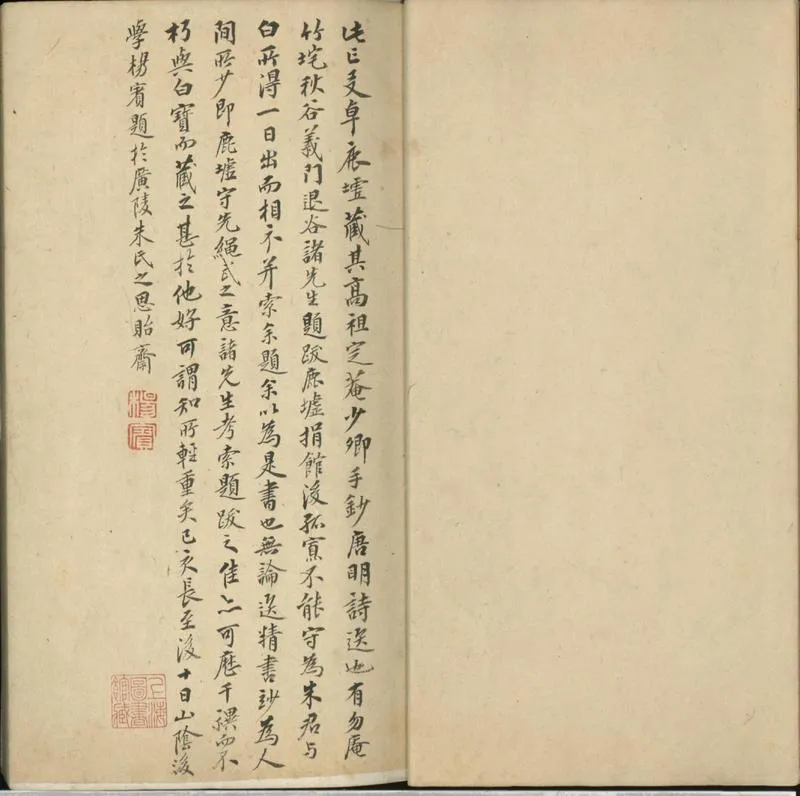 此亡友卓鹿墟藏其高祖定菴少卿手鈔唐明詩選也有勿庵
竹垞秋谷義門退谷諸先生題跋鹿墟捐館後孤寡不能守為朱君与
白所得一日出而相示并索余題余以為是書也無論選精書妙為人
間所少即鹿墟守先繩武之意諸先生考索題跋之佳亦可歷千禩而不
朽與白寶而藏之甚於他好可謂知所輕重矣己亥長至後十日山陰後
學楊賓題於廣陵朱氏之思貽齋
上海圖書館藏